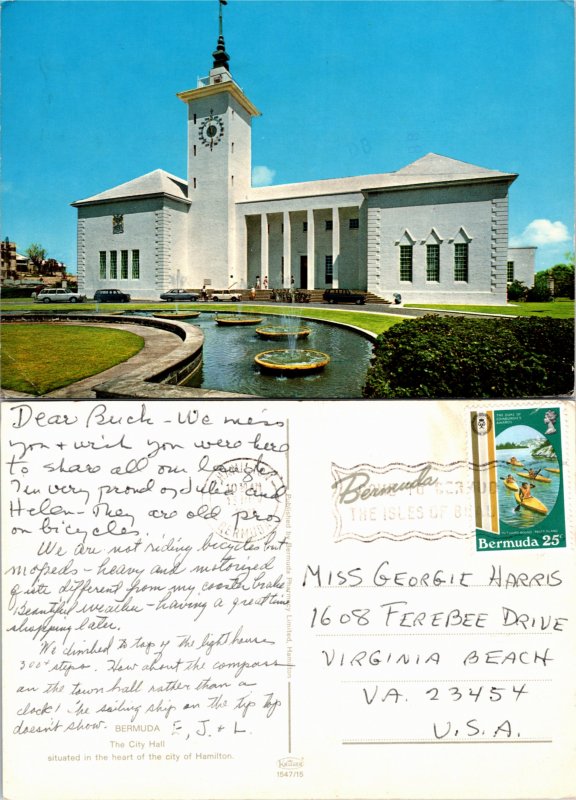 Dear Buck - We miss
you + wish you were here
to share all our laughs
I'm very proud of Julie and
Helen - They are old pros
on bicycles.
We are not riding bicycles but
mopeds - heavy and motorized
quite different from my coaster brake
Beautiful weather - having a great time
shopping later.
We climbed to top of the lighthouse
300+ steps. How about the compass
on the town hall rather than a
clock! The sailing ship on the tip top
doesn't show. E, J. + L.
BERMUDA
The City Hall
situated in the heart of the city of Hamilton.
Published by Bermuda Pharmacy Limited, Hamilton
1547/15
BERMUDA
Bermuda
THE ISLES OF
THE DUKE OF
EDINBURGH'S
AWARDS
Bermuda 25c
MISS GEORGIE HARRIS
1608 FEREBEE DRIVE
VIRGINIA BEACH
VA. 23454
U.S.A.